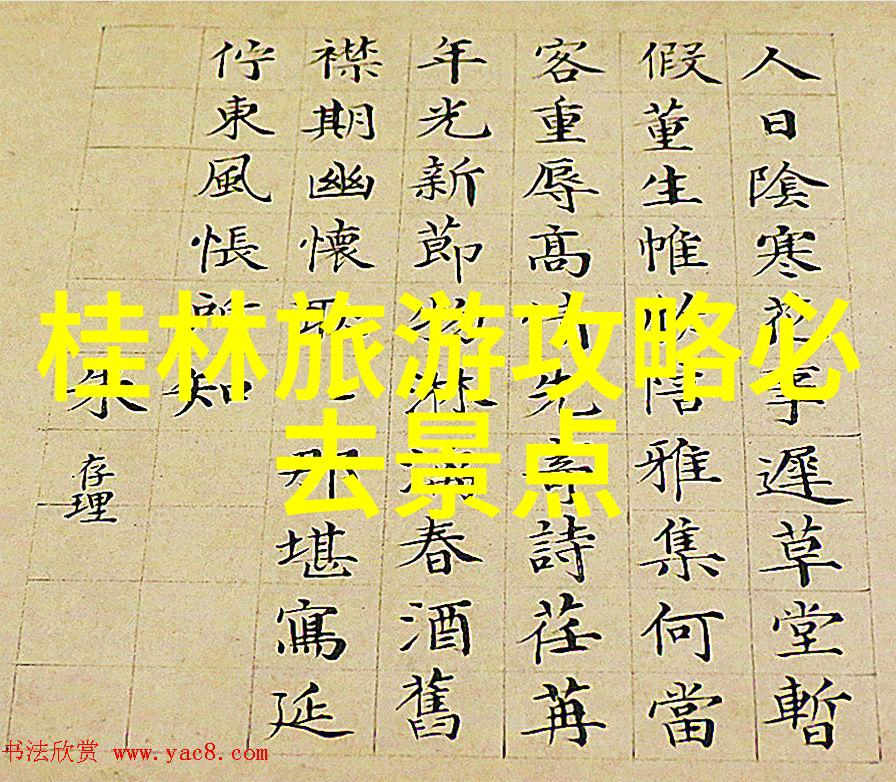 人日陰寒花事遲草堂暫
假董生帷雅集何當
客重辱高先詩荏苒
年光新節物春酒舊
襟期幽懷那堪寫延
佇東風悵所知
朱
存理
桂林旅游攻略必
去景点
书法欣赏 www.yac8.com